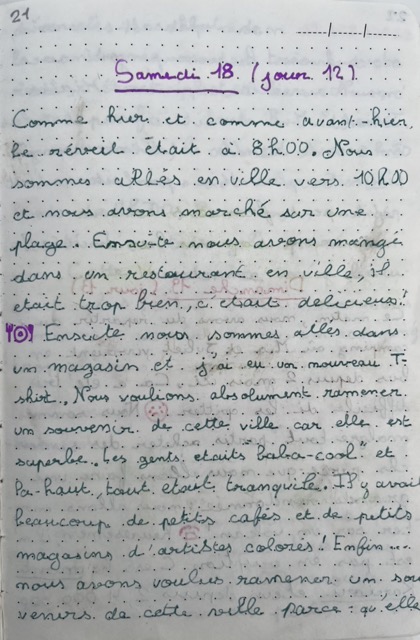 21
Samedi 18 (jour 12)
Comme hier et comme avant-hier,
le réveil était à 8h00. Nous
sommes allés en ville vers 10h00
et nous avons marché sur une
plage. Ensuite nous avons mangé
dans un restaurant en ville, il
etait trop bien, c'etait délicieux!
Ensuite nous sommes allés dans
un magasin et j'ai eu un nouveau T-
shirt. Nous voulions absolument ramener
un souvenir de cette ville car elle est
superbe. Les gents etaits "baba-cool" et
la-haut, tout etait tranquile. Il y avai
beaucoup de petits cafés et de petits
magasins d'artistes colorés! Enfin...
nous avons voulus ramener un sou
venirs de cette ville parce qu'elle